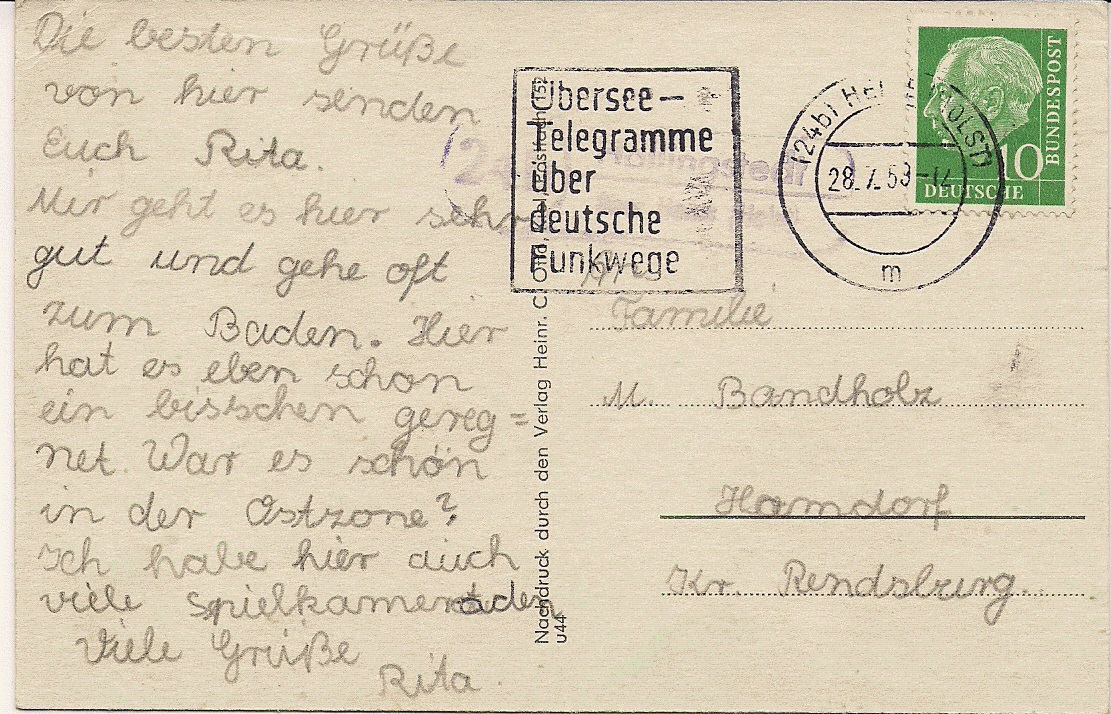 Die besten Grüße
von hier senden
Euch Rita.
Mir geht es hier sehr
gut und gehe oft
zum Baden. Hier
hat es eben schon
ein bisschen gereg=
net. War es schön
in der Ostzone?
Ich habe hier auch
viele Spielkameraden
Viele Grüße
Rita
Nachdruck durch den Verlag Heinr. C.
u44
Übersee-
Telegramme
über
deutsche
Funkwege
(24b)
28.7.58-12
m
BUNDESPOST
10
DEUTSCHE
Familie
M. Bandholz
Hamdorf
Kr. Rendsburg.